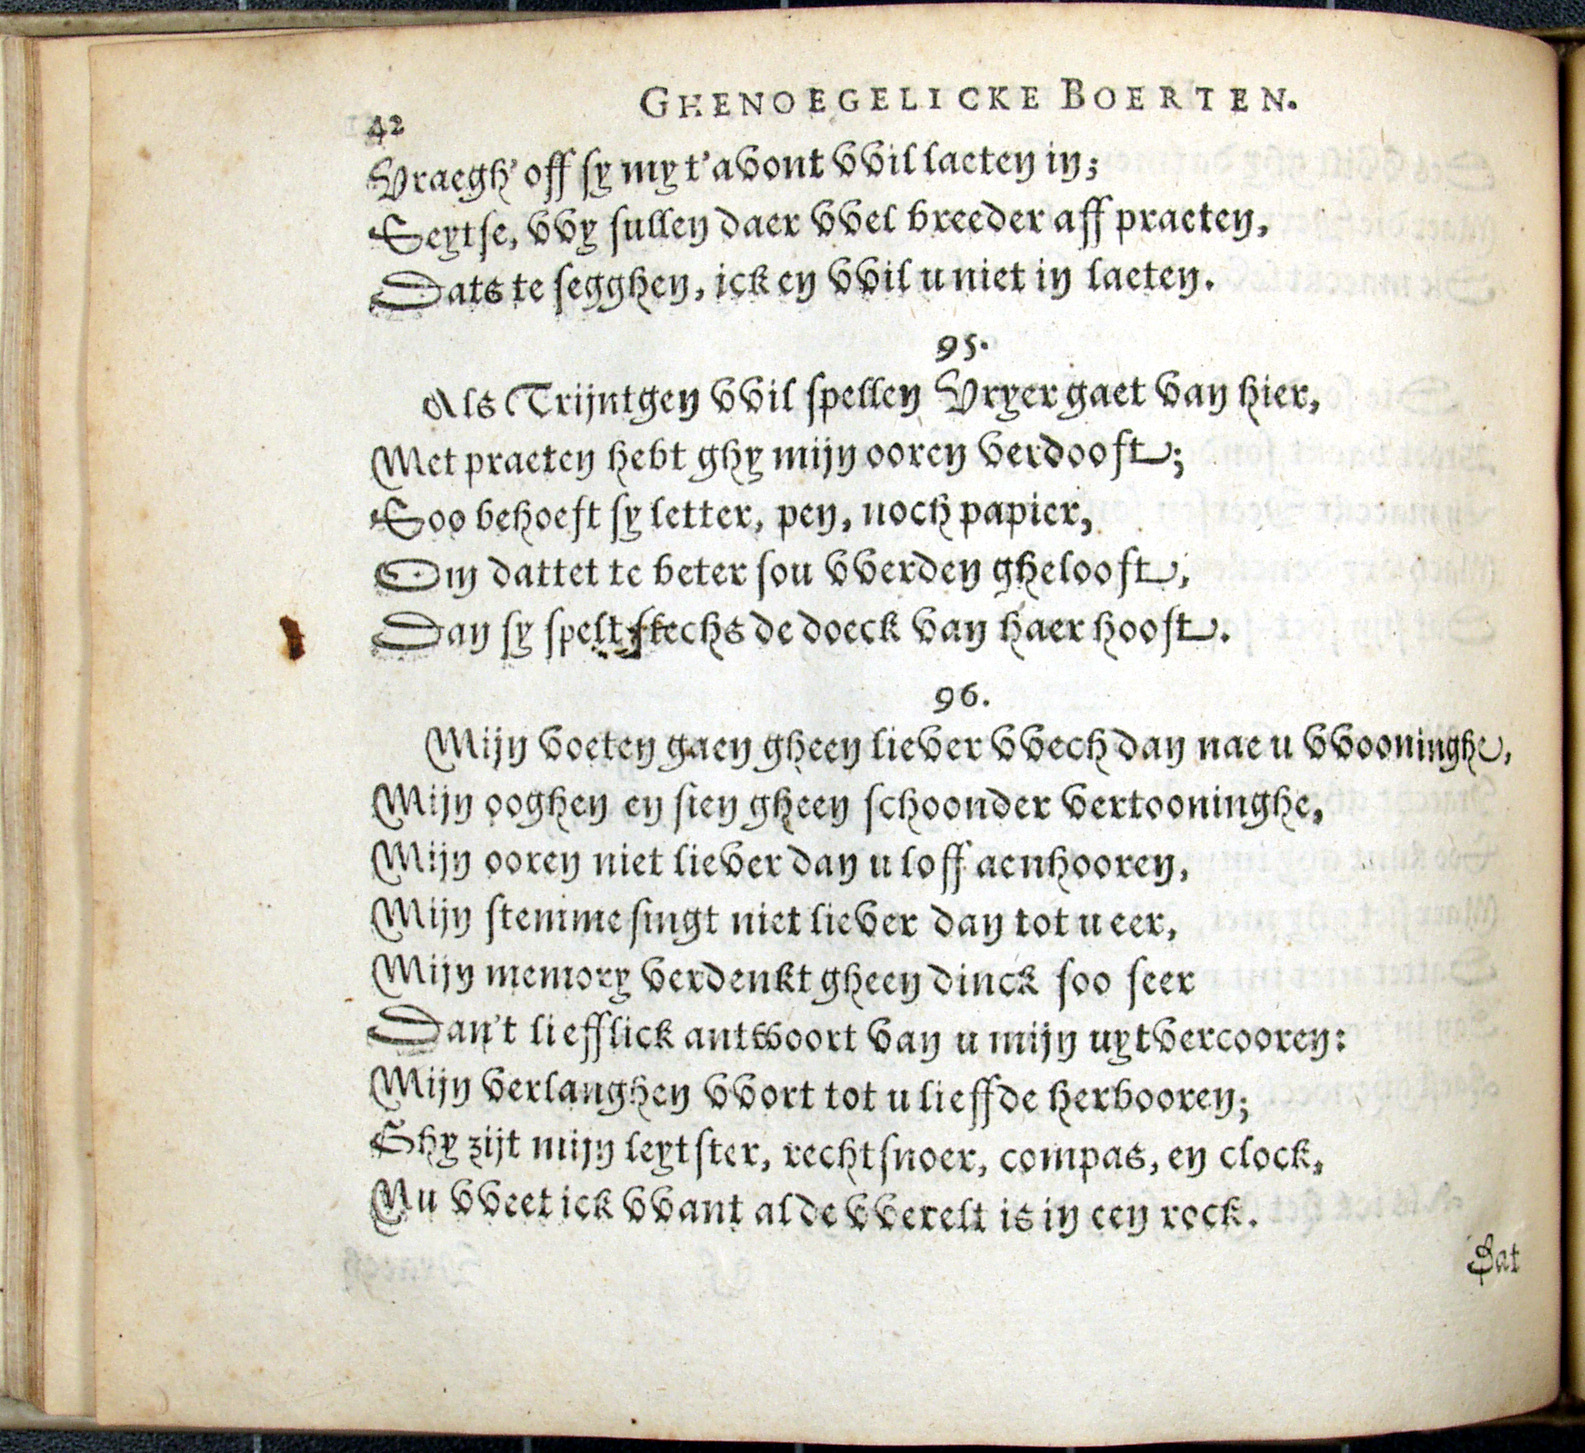 GHENOEGELICKE BOERTEN.
42
Vraegh' off sy my t'avont vvil laeten in;
Seytse, vvy sullen daer vvel breeder aff praeten,
Dats te segghen, ick en vvil u niet in laeten.
95.
Als Trijntgen vvil spellen Vryer gaet van hier,
Met praeten hebt ghy mijn ooren verdooft;
Soo behoeft sy letter, pen, noch papier,
Om dattet te beter sou vverden ghelooft,
Dan sy spelt slechs de doeck van haer hooft.
96.
Mijn voeten gaen gheen liever vvech dan nae u vvooninghe,
Mijn ooghen en sien gheen schoonder vertooninghe,
Mijn ooren niet liever dan u loff aenhooren,
Mijn stemme singt niet liever dan tot u eer,
Mijn memory verdenkt gheen dinck soo seer
Dan't liefflick antwoort van u mijn uytvercooren:
Mijn verlanghen vvort tot u lieffde herbooren;
Ghy zijt mijn leytster, rechtsnoer, compas, en clock,
Nu vveet ick vvant al de vverelt is in een rock.
Dat